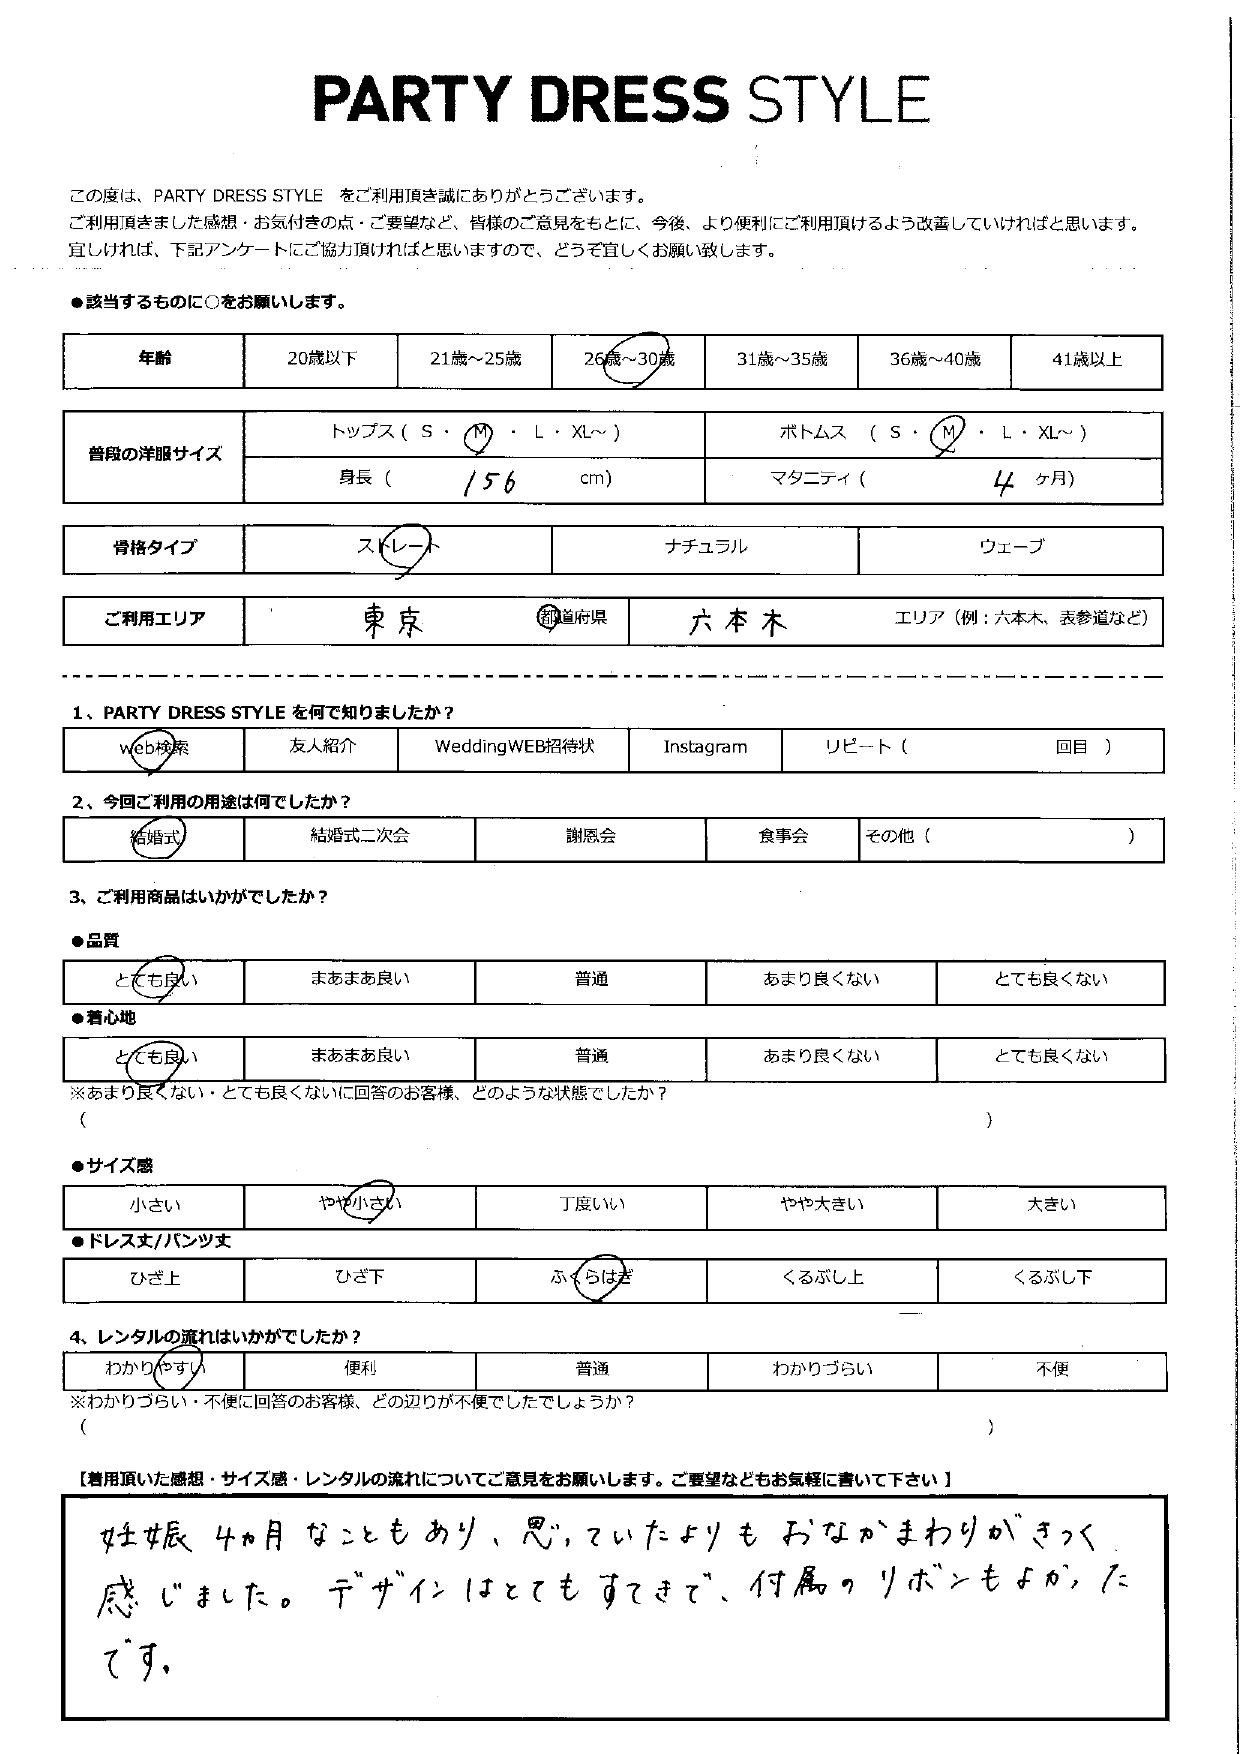 PARTY DRESS STYLE
この度は、PARTY DRESS STYLE をご利用頂き誠にありがとうございます。
ご利用頂きました感想・お気付きの点・ご要望など、皆様のご意見をもとに、今後、より便利にご利用頂けるよう改善していければと思います。
宜しければ、下記アンケートにご協力頂ければと思いますので、どうぞ宜しくお願い致します。
●該当するものに○をお願いします。
年齢 20歳以下 21歳～25歳 26歳～30歳 31歳～35歳 36歳～40歳 41歳以上
普段の洋服サイズ トップス ( S ・ M ・ L ・ XL～ ) ボトムス ( S ・ M ・ L ・ XL～ )
身長 ( 156 cm) マタニティ ( 4 ヶ月)
骨格タイプ ストレート ナチュラル ウェーブ
ご利用エリア 東京 都道府県 六本木 エリア（例：六本木、表参道など）
1、PARTY DRESS STYLE を何で知りましたか？
web検索 友人紹介 WeddingWEB招待状 Instagram リピート（ 回目 ）
2、今回ご利用の用途は何でしたか？
結婚式 結婚式二次会 謝恩会 食事会 その他（ ）
3、ご利用商品はいかがでしたか？
●品質
とても良い まあまあ良い 普通 あまり良くない とても良くない
●着心地
とても良い まあまあ良い 普通 あまり良くない とても良くない
※あまり良くない・とても良くないに回答のお客様、どのような状態でしたか？
（ ）
●サイズ感
小さい やや小さい 丁度いい やや大きい 大きい
●ドレス丈/パンツ丈
ひざ上 ひざ下 ふくらはぎ くるぶし上 くるぶし下
4、レンタルの流れはいかがでしたか？
わかりやすい 便利 普通 わかりづらい 不便
※わかりづらい・不便に回答のお客様、どの辺りが不便でしたでしょうか？
（ ）
【着用頂いた感想・サイズ感・レンタルの流れについてご意見をお願いします。ご要望などもお気軽に書いて下さい 】
妊娠4ヵ月なこともあり、思っていたよりもおなかまわりがきつく
感じました。デザインはとてもすてきで、付属のリボンもよかった
です。